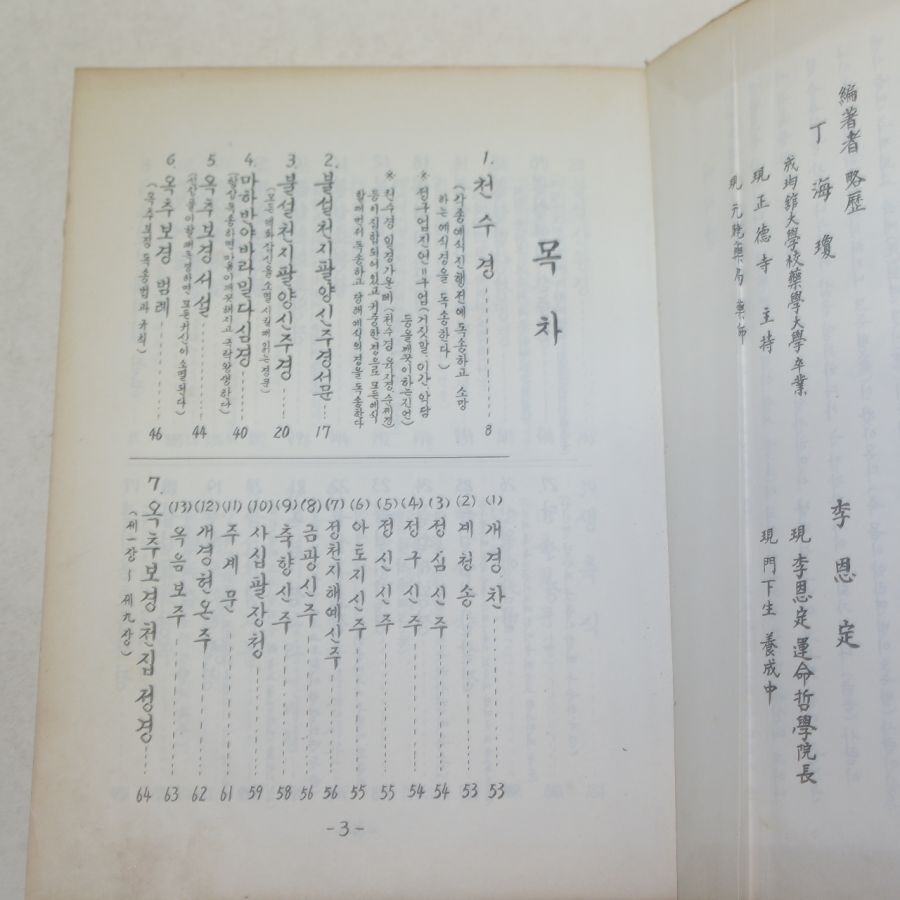 編著者 略歷
丁海瓊
成均館大學校藥學大學卒業
現 正德寺 主持
現 元 藥局 藥師
李恩定
現 李恩定 運命哲學院長
現 門下生 養成中
목차
1. 천수경 8
(각종예식진행전에 독송하고 소망
하는예식경을 독송한다)
※ 정구업진언=구업(거짓말, 이간, 악담
등을깨끗이하는진언)
※ 천수경 일경가운데(천수경
등이집합되어있고 귀중한경으로 모든예식
할때먼저독송하고 당해예식의경을 독송한다
2. 불설천지팔양신주경서문 17
3. 불설천지팔양신주경 20
(모든대화삼신을 소멸시킬때읽는경문)
4. 마하반야바라밀다심경 40
(항상독송하면 마음이깨끗해지고 극락왕생한다)
5. 옥추보경 서설 44
모든귀신이소멸된다)
6. 옥추보경 범례 46
(옥추보경 독송법과 규칙)
(1) 개경찬 53
(2) 계청송 53
(3) 정심신주 54
(4) 정구신주 54
(5) 정신신주 55
(6) 아토지신주 55
(7) 정천지해예신주 56
(8) 금광신주 56
(9) 축향신주 58
(10) 사십팔장청 59
(11) 주계문 61
(12) 개경현온주 62
(13) 옥음보주 63
7. 옥추보경천집정경 64
(제一장 ~ 제九장)
-3-